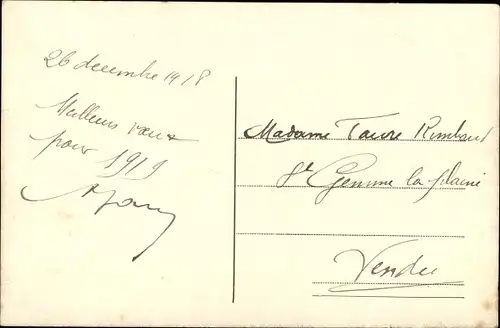 26 decembre 1918
Meilleurs vœux
pour 1919
Madame Favre Rimbaud
Ste Gemme la plaine
Vendée